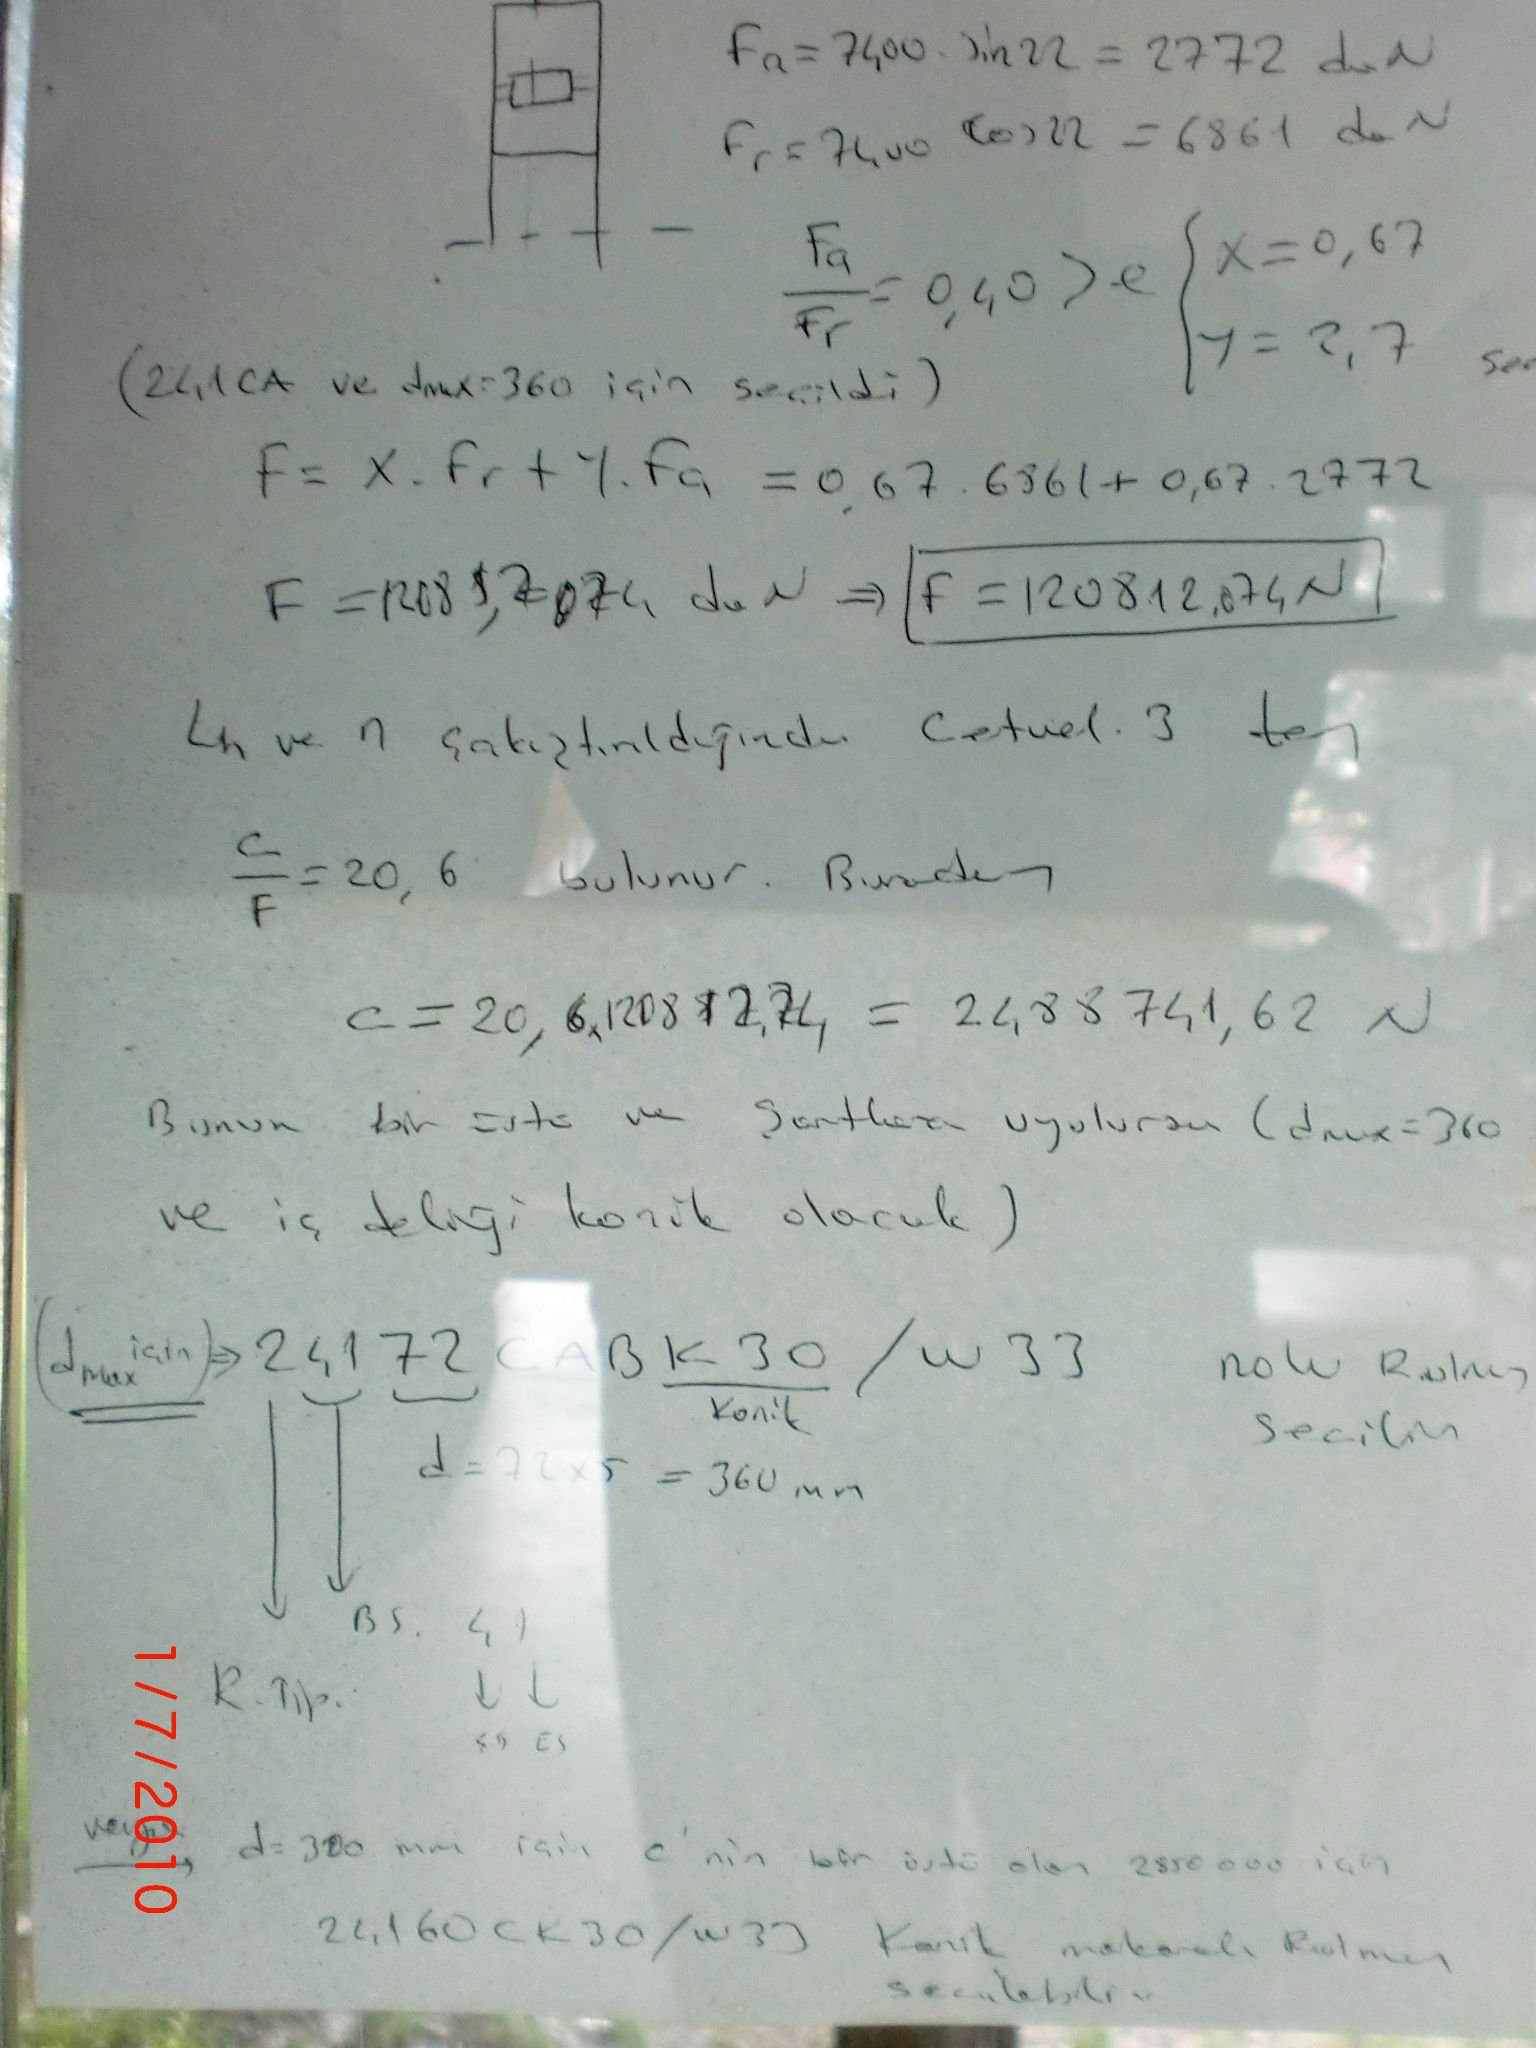 Fa = 7400 . Sin 22 = 2772 daN
Fr = 7400 Cos 22 = 6861 daN
Fa/Fr = 0,40 > e { X = 0,67
Y = 2,7
(241CA ve dmax=360 için seçildi)
F = X . Fr + Y . Fa = 0,67 . 6861 + 0,67 . 2772
F = daN ⇒ F = 120812,074 N
Lh ve n çakıştırıldığında Cetvel. 3 ten
C/F = 20,6 bulunur. Buradan
C = 20,6 x 120812,74 = 2488741,62 N
Bunun bir üstü ve Şartlara uyulursa (dmax=360
ve iç deliği konik olacak)
(dmax için) ⇒ 24172 CABK30/W33 nolu Rulman
Konik
seçilir
d = 72 x 5 = 360 mm
BS. 41
R. Tip.
ES
1/7/2010
veya d=300 mm için C'nin bir üstü olan 2850000 için
24160CK30/W33 Konik makaralı Rulman
seçilebilir.